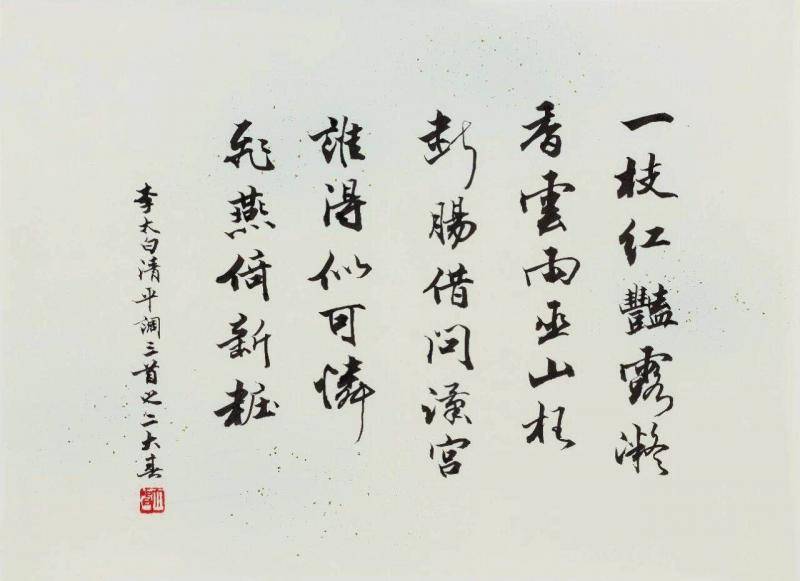 一枝红豔露凝
香雲雨巫山枉
断腸借问漢宮
誰得似可憐
飛燕倚新粧
李太白清平調三首之二大春